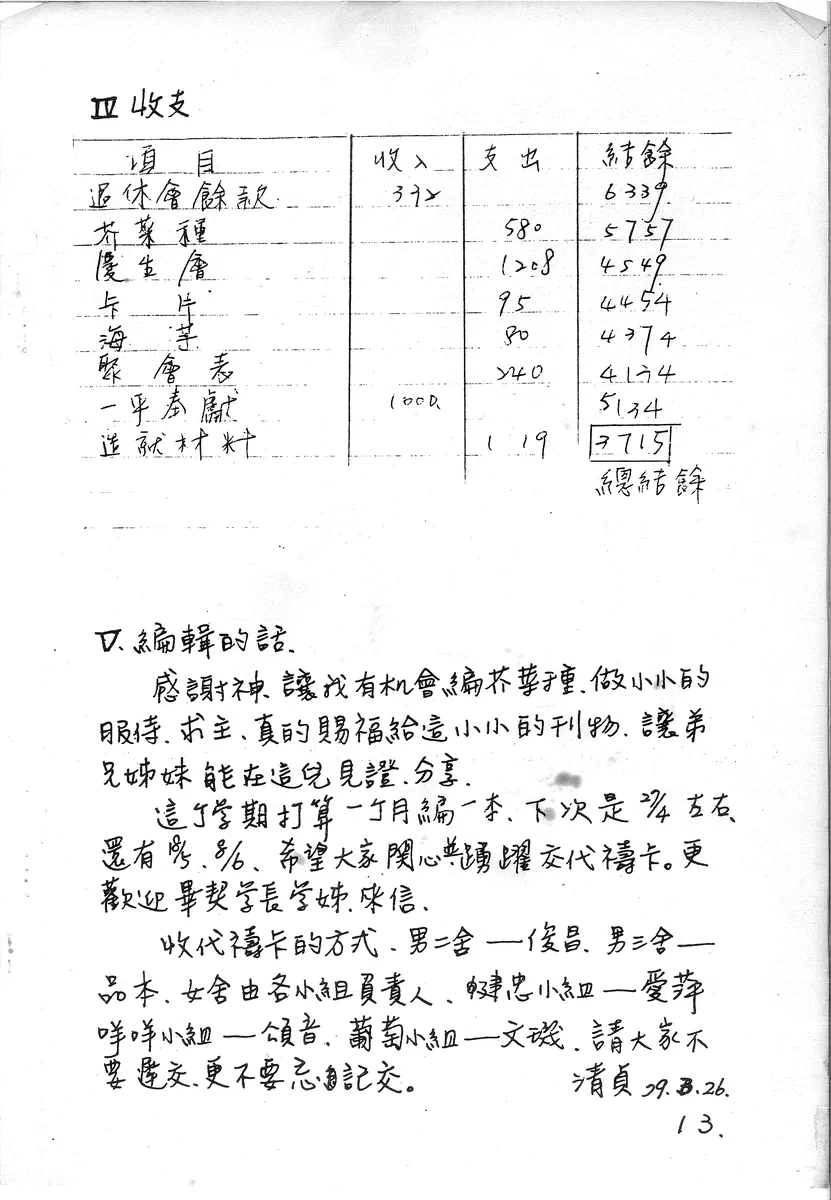 IV 收支
項目 收入 支出 結餘
退休會餘款 392 6339
芥菜種 580 5757
慶生會 1208 4549
卡片 95 4454
海芋 80 4374
聚會表 240 4134
一平奉獻 1000. 5134
造就材料 1 19 3715
總結餘
V. 編輯的話.
感謝神、讓我有机會編芥菜種、做小小的
服侍、求主、真的賜福給這小小的刊物、讓弟
兄姊妹能在這兒見證、分享.
這个学期打算一个月編一本、下次是27/4左右、
還有 /5、8/6、希望大家関心與踴躍交代禱卡。更
歡迎畢契学長学姊、來信.
收代禱卡的方式、男二舍——俊昌、男三舍——
品本、女舍由各小組負責人、忠小組——愛萍
咩咩小組——頌音、葡萄小組——文璣、請大家不
要遲交、更不要忘記交。 清貞 79.3.26.
13.